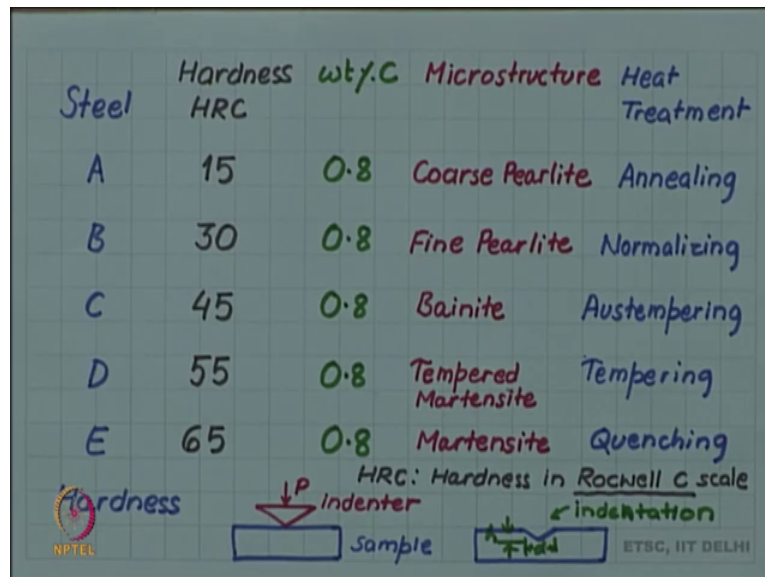 Steel Hardness HRC wt%.C Microstructure Heat Treatment
A 15 0.8 Coarse Pearlite Annealing
B 30 0.8 Fine Pearlite Normalizing
C 45 0.8 Bainite Austempering
D 55 0.8 Tempered Martensite Tempering
E 65 0.8 Martensite Quenching
HRC: Hardness in Rocwell C scale
Hardness P indenter indentation
sample
NPTEL ETSC, IIT DELHI